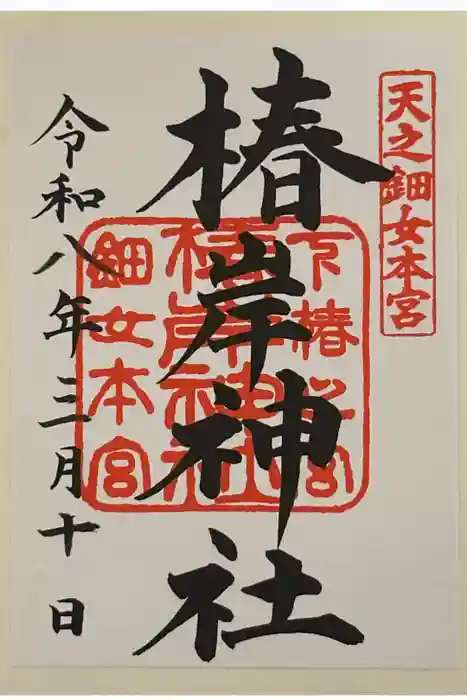 天之鈿女本宮
椿岸神社
下椿
椿岸神社
鈿女本宮
令和八年三月十日